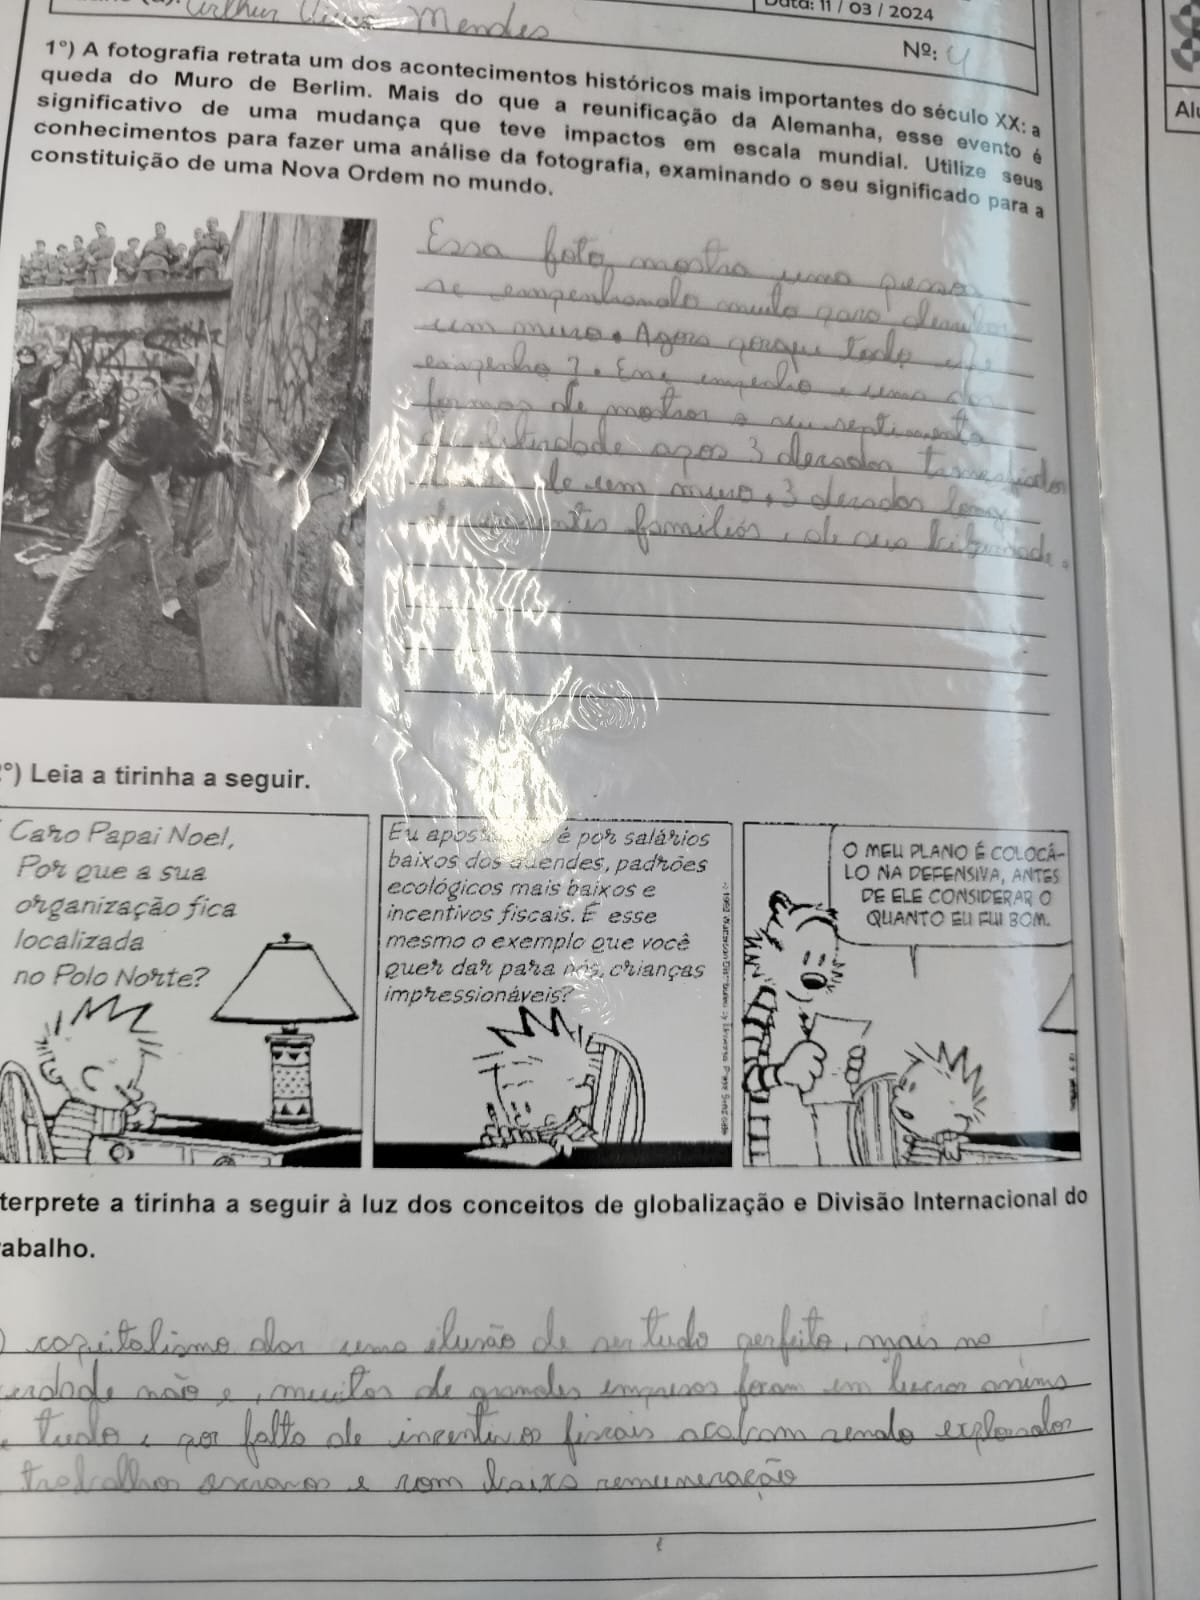 Arthur Mendes
Data: 11 / 03 / 2024
Nº: 4
1°) A fotografia retrata um dos acontecimentos históricos mais importantes do século XX: a
queda do Muro de Berlim. Mais do que a reunificação da Alemanha, esse evento é
significativo de uma mudança que teve impactos em escala mundial. Utilize seus
conhecimentos para fazer uma análise da fotografia, examinando o seu significado para a
constituição de uma Nova Ordem no mundo.
Essa foto mostra uma pessoa
se empenhando muito para
um muro. Agora porque todo
empenho?. Esse empenho e uma das
formas de mostrar o seu sentimento
de após 3 decadas
de um muro, 3 decadas longe
familias, de sua
°) Leia a tirinha a seguir.
Caro Papai Noel,
Por que a sua
organização fica
localizada
no Polo Norte?
Eu é por salários
baixos dos duendes, padrões
ecológicos mais baixos e
incentivos fiscais. É esse
mesmo o exemplo que você
quer dar para nós, crianças
impressionáveis?
O MEU PLANO É COLOCÁ-
LO NA DEFENSIVA, ANTES
DE ELE CONSIDERAR O
QUANTO EU FUI BOM.
terprete a tirinha a seguir à luz dos conceitos de globalização e Divisão Internacional do
abalho.
capitalismo dar uma ilusão de ser tudo perfeito, mais na
erdade não e, muitos de grandes empresas foram em lucror
tudo e por falta de incentivos fiscais acabam sendo
trabalhos escravos e com baixa remuneração
Alu